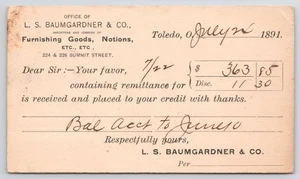 OFFICE OF
L. S. BAUMGARDNER & CO.,
IMPORTERS AND JOBBERS OF
Furnishing Goods, Notions,
ETC., ETC.,
224 & 226 SUMMIT STREET.
Toledo, O July 22 1891.
Dear Sir:—Your favor, 7/22 $ 363 85
containing remittance for Disc. 11 30
is received and placed to your credit with thanks.
Bal Acct to June 30
Respectfully yours,
L. S. BAUMGARDNER & CO.
Per